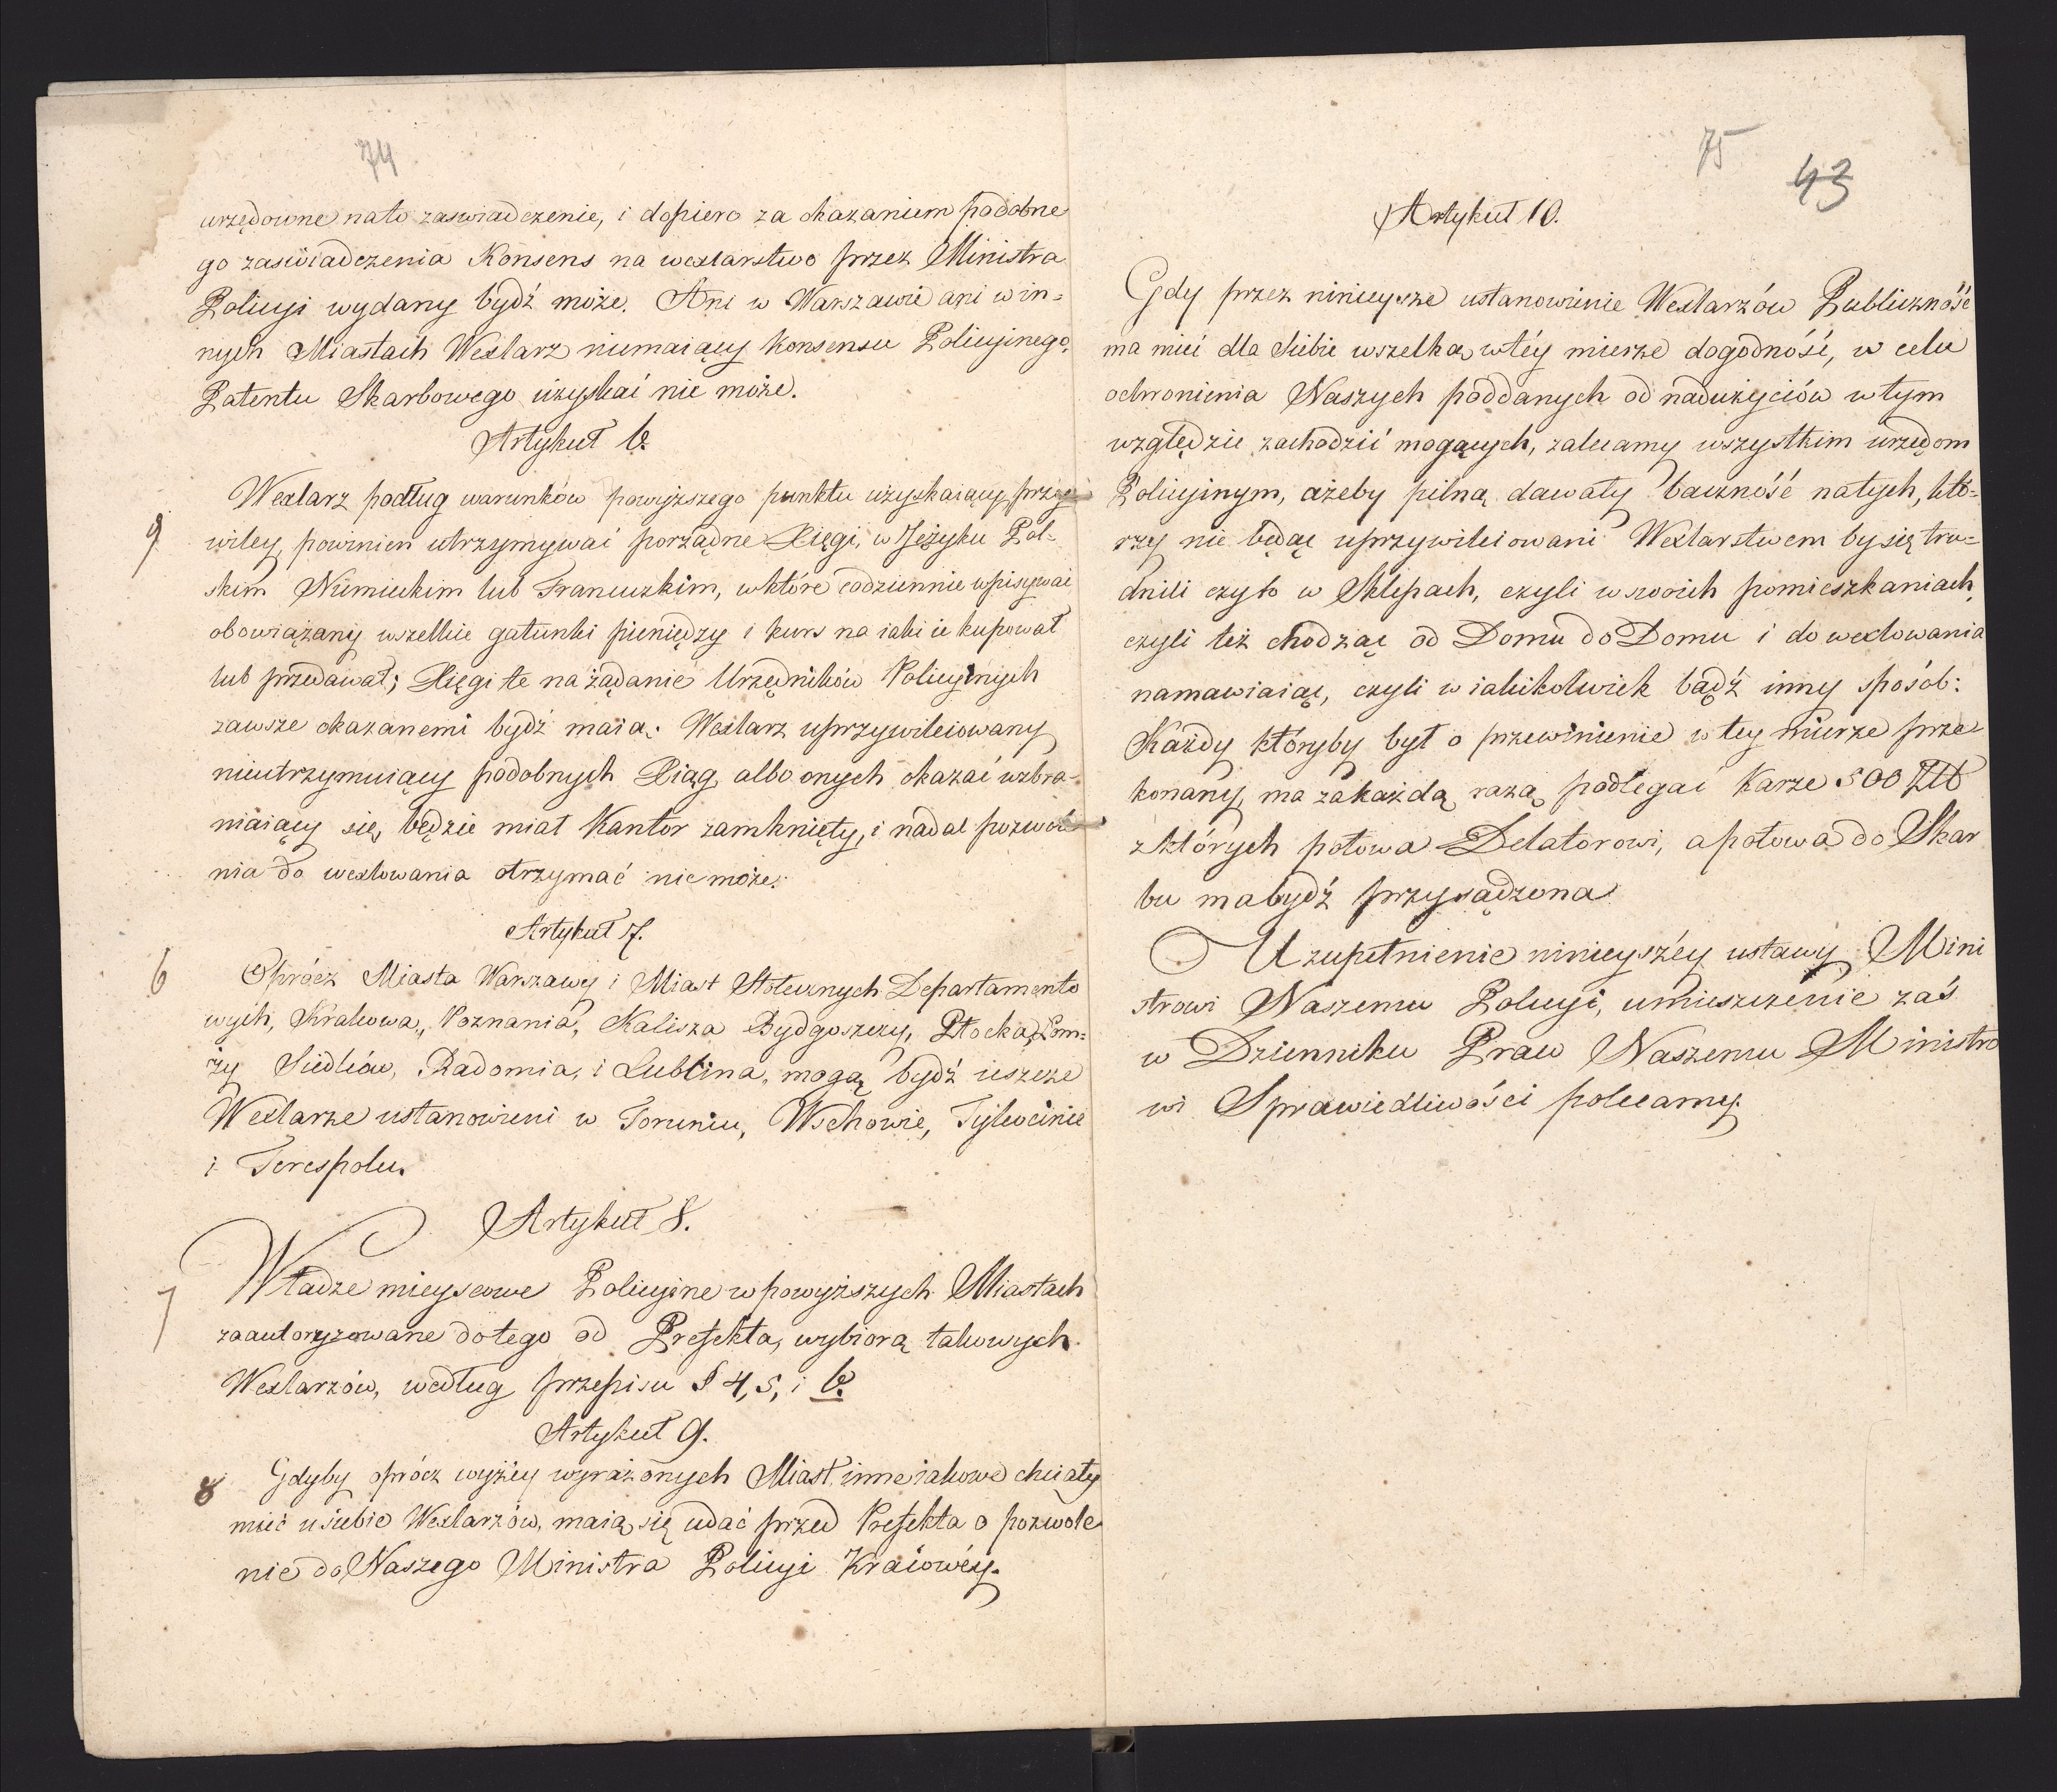 74
urzędowne nato zaswiadczenie, i dopiero za okazaniem podobne
go zaświadczenia Konsens na wexlarstwo przez Ministra
Policyi wydany bydź może. Ani w Warszawie ani w in=
nych Miastach Wexlarz niemaiący konsensu Policyjnego,
Patentu Skarbowego uzyskać nie może.
Artykuł 6.
Wexlarz podług warunków powyższego punktu uzyskaiący przy
9 wiley, powinien utrzymywać porządne Xięgi, w Języku Pol=
skim Niemieckim lub Francuzkim, w które codziennie wpisywać
obowiązany wszelkie gatunki pieniędzy i kurs na iaki ie kupował
lub przedawał; Xięgi te na żądanie Urzędników Policyinych
zawsze okazanemi bydź maią. Wexlarz uprzywileiowany
nieutrzymuiący podobnych Xiąg, albo onych okazać wzbra=
niaiący się, będzie miał Kantor zamknięty, i nadal pozwole
nia do wexlowania otrzymać nie może.
Artykuł 7.
6 Oprócz Miasta Warszawy i Miast Stołecznych Departamento
wych, Krakowa, Poznania, Kalisza Bydgoszczy, Płocka, Łom=
ży Siedlców, Radomia, i Lublina, mogą bydź ieszcze
Wexlarze ustanowieni w Toruniu, Wschowie, Tykocinie
i Terespolu.
Artykuł 8.
7 Władze mieyscowe Policyine w powyższych Miastach
zaautoryzowane dotego od Prefekta, wybiorą takowych
Wexlarzów, według przepisu § 4, 5, i 6.
Artykuł 9.
8 Gdyby oprócz wyżéy wyrażonych Miast, inne iakowe chciały
mieć usiebie Wexlarzów, maią się udać przed Prefekta o pozwole
nie do Naszego Ministra Policyi Kraiowéy.
75
43
Artykuł 10.
Gdy przez ninieysze ustanowienie Wexlarzów Publiczność
ma mieć dla Siebie wszelką wtéy mierze dogodność, w celu
ochronienia Naszych poddanych od nadużyciów w tym
względzie zachodzić mogących, zalecamy wszystkim urzędom
Policyinym, ażeby pilną dawały baczność natych, któ=
rzy nie będąc uprzywileiowani Wexlarstwem by się tru=
dnili czyto w Sklepach, czyli w swoich pomieszkaniach,
czyli też chodząc od Domu do Domu i do wexlowania
namawiaiąc, czyli w iakikolwiek bądź inny sposób:
Każdy któryby był o przewinienie w tey mierze prze
konany, ma zakażdą razą podlegać Karze 500 Złł
z których połowa Delatorowi, a połowa do Skar
bu mabydź przysądzona
Uzupełnienie ninieyszéy ustawy Mini
strowi Naszemu Policyi, umieszczenie zaś
w Dzienniku Praw Naszemu Ministro
wi Sprawiedliwości polecamy.